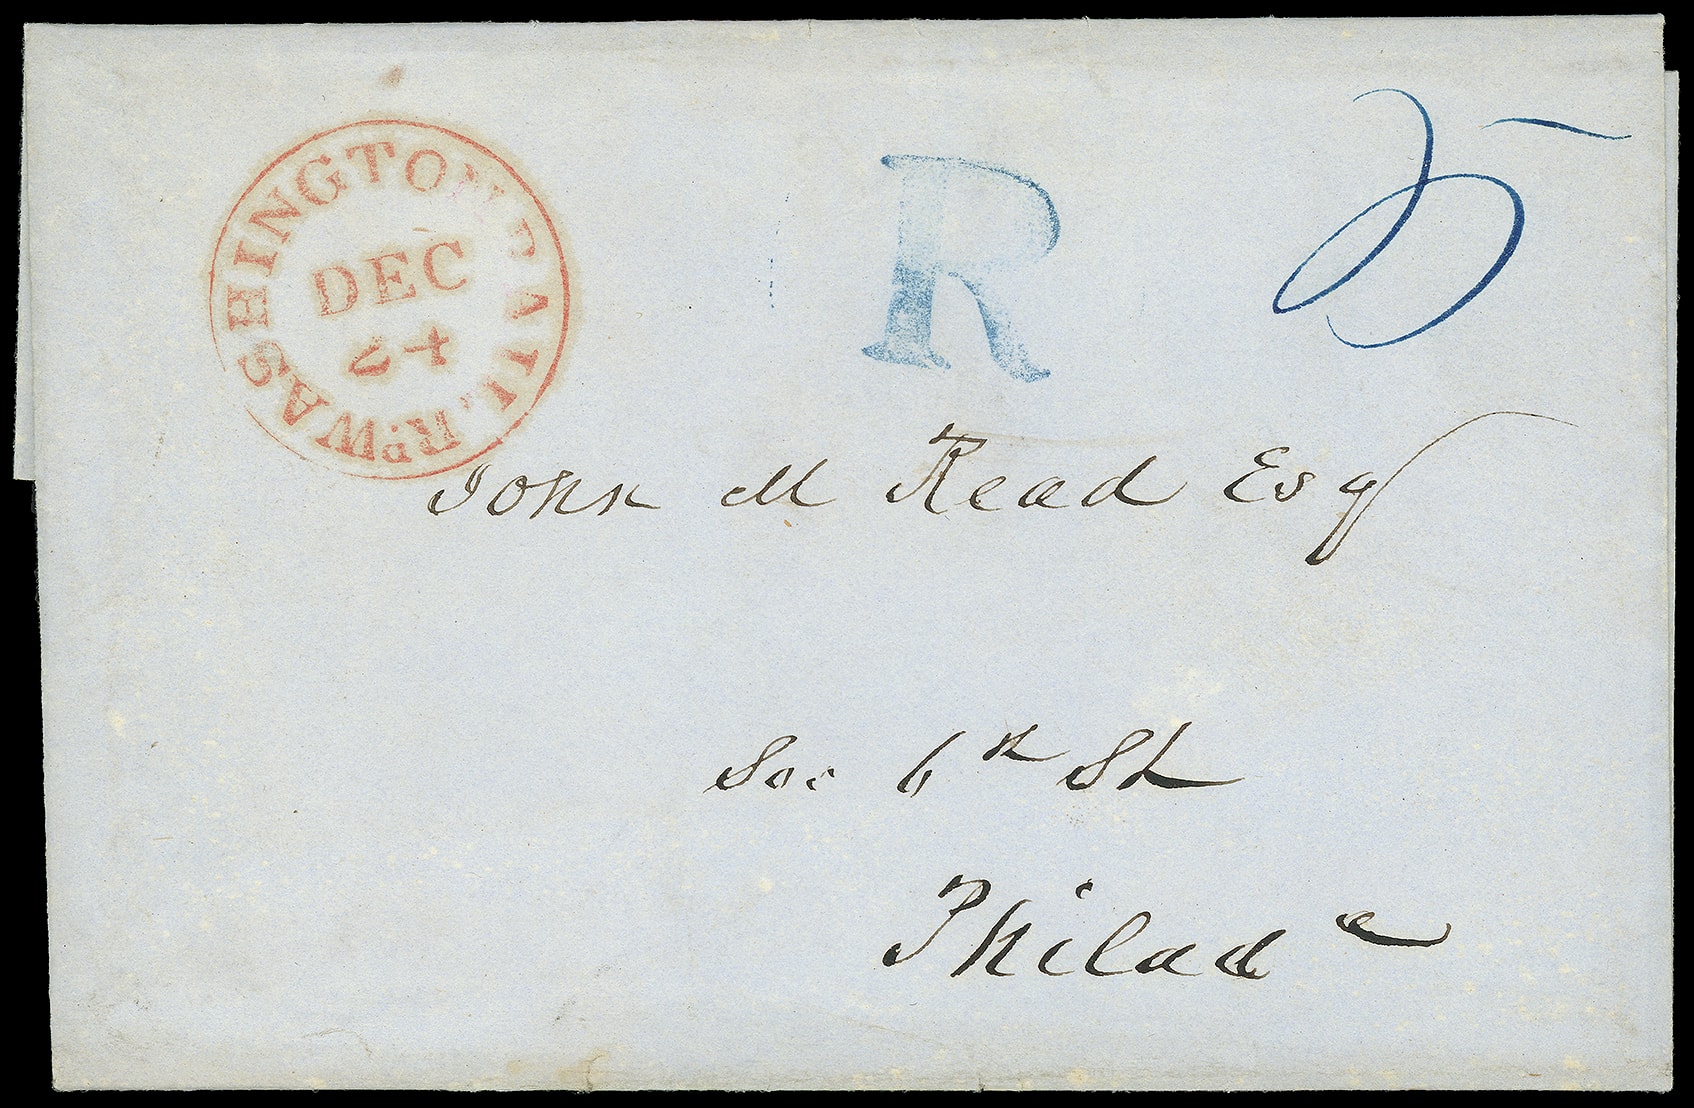 WASHINGTON BALT. Rd.
DEC
24
R
5
John M Read Esq
Sou 6th St
Philada